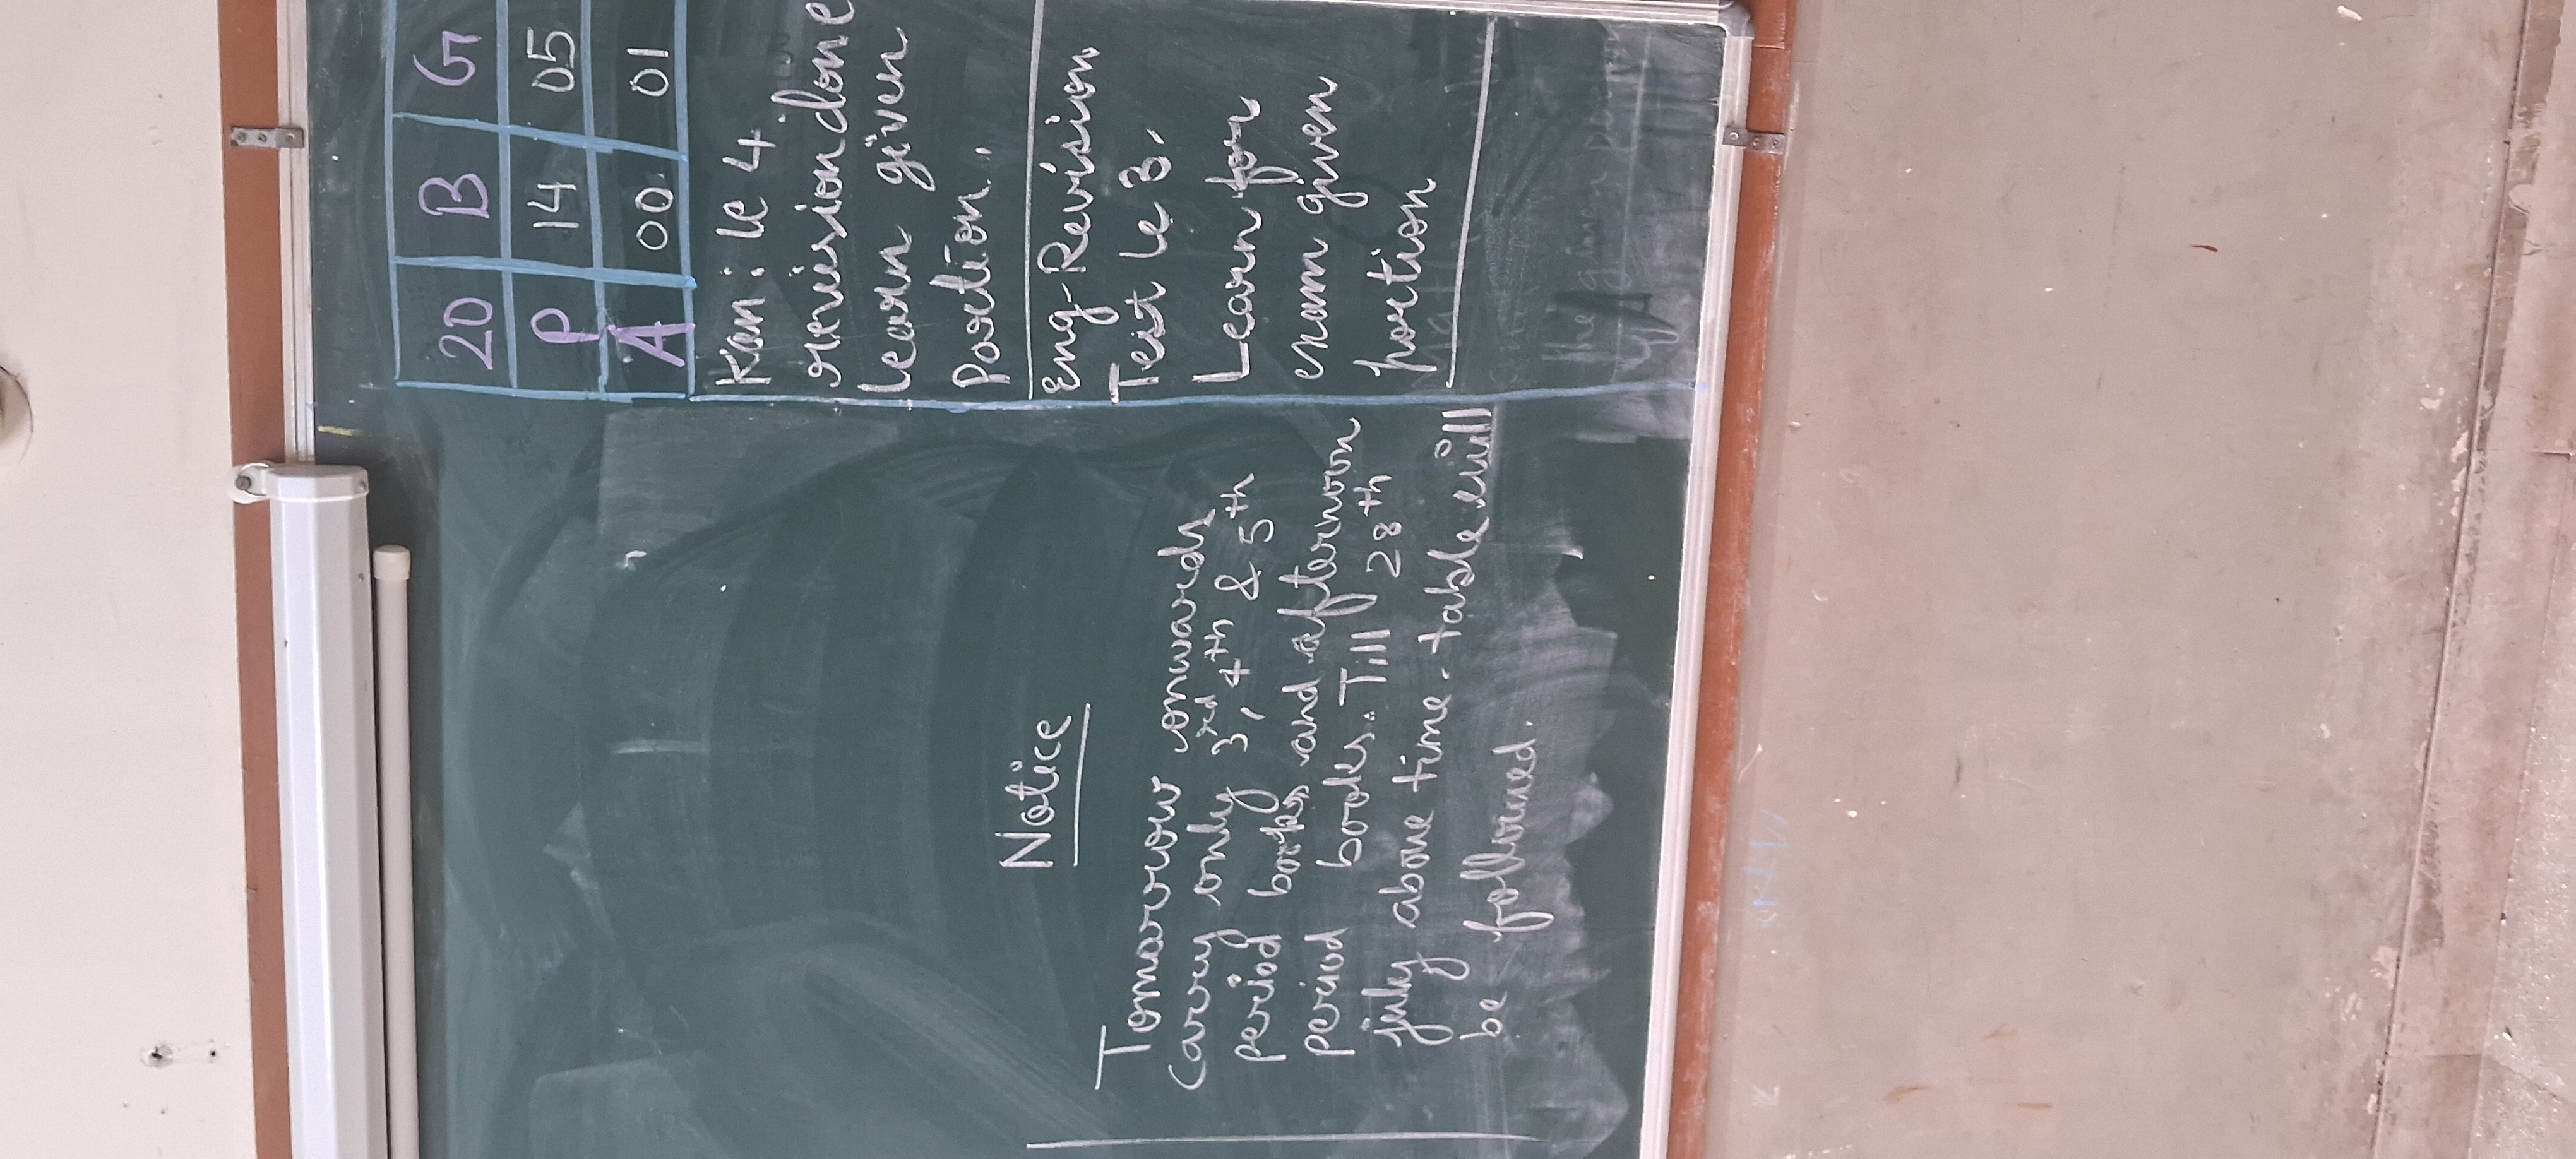 Notice
Tomarrow onwards
Carry only 3rd, 4th & 5th
period books and afternoon
period books. Till 28th
july above time-table will
be followed.
20 B G
P 14 05
A 00 01
Kan: le 4.
revision done
learn given
Portion.
Eng-Revision
Test le 3.
Learn for
exam given
portion